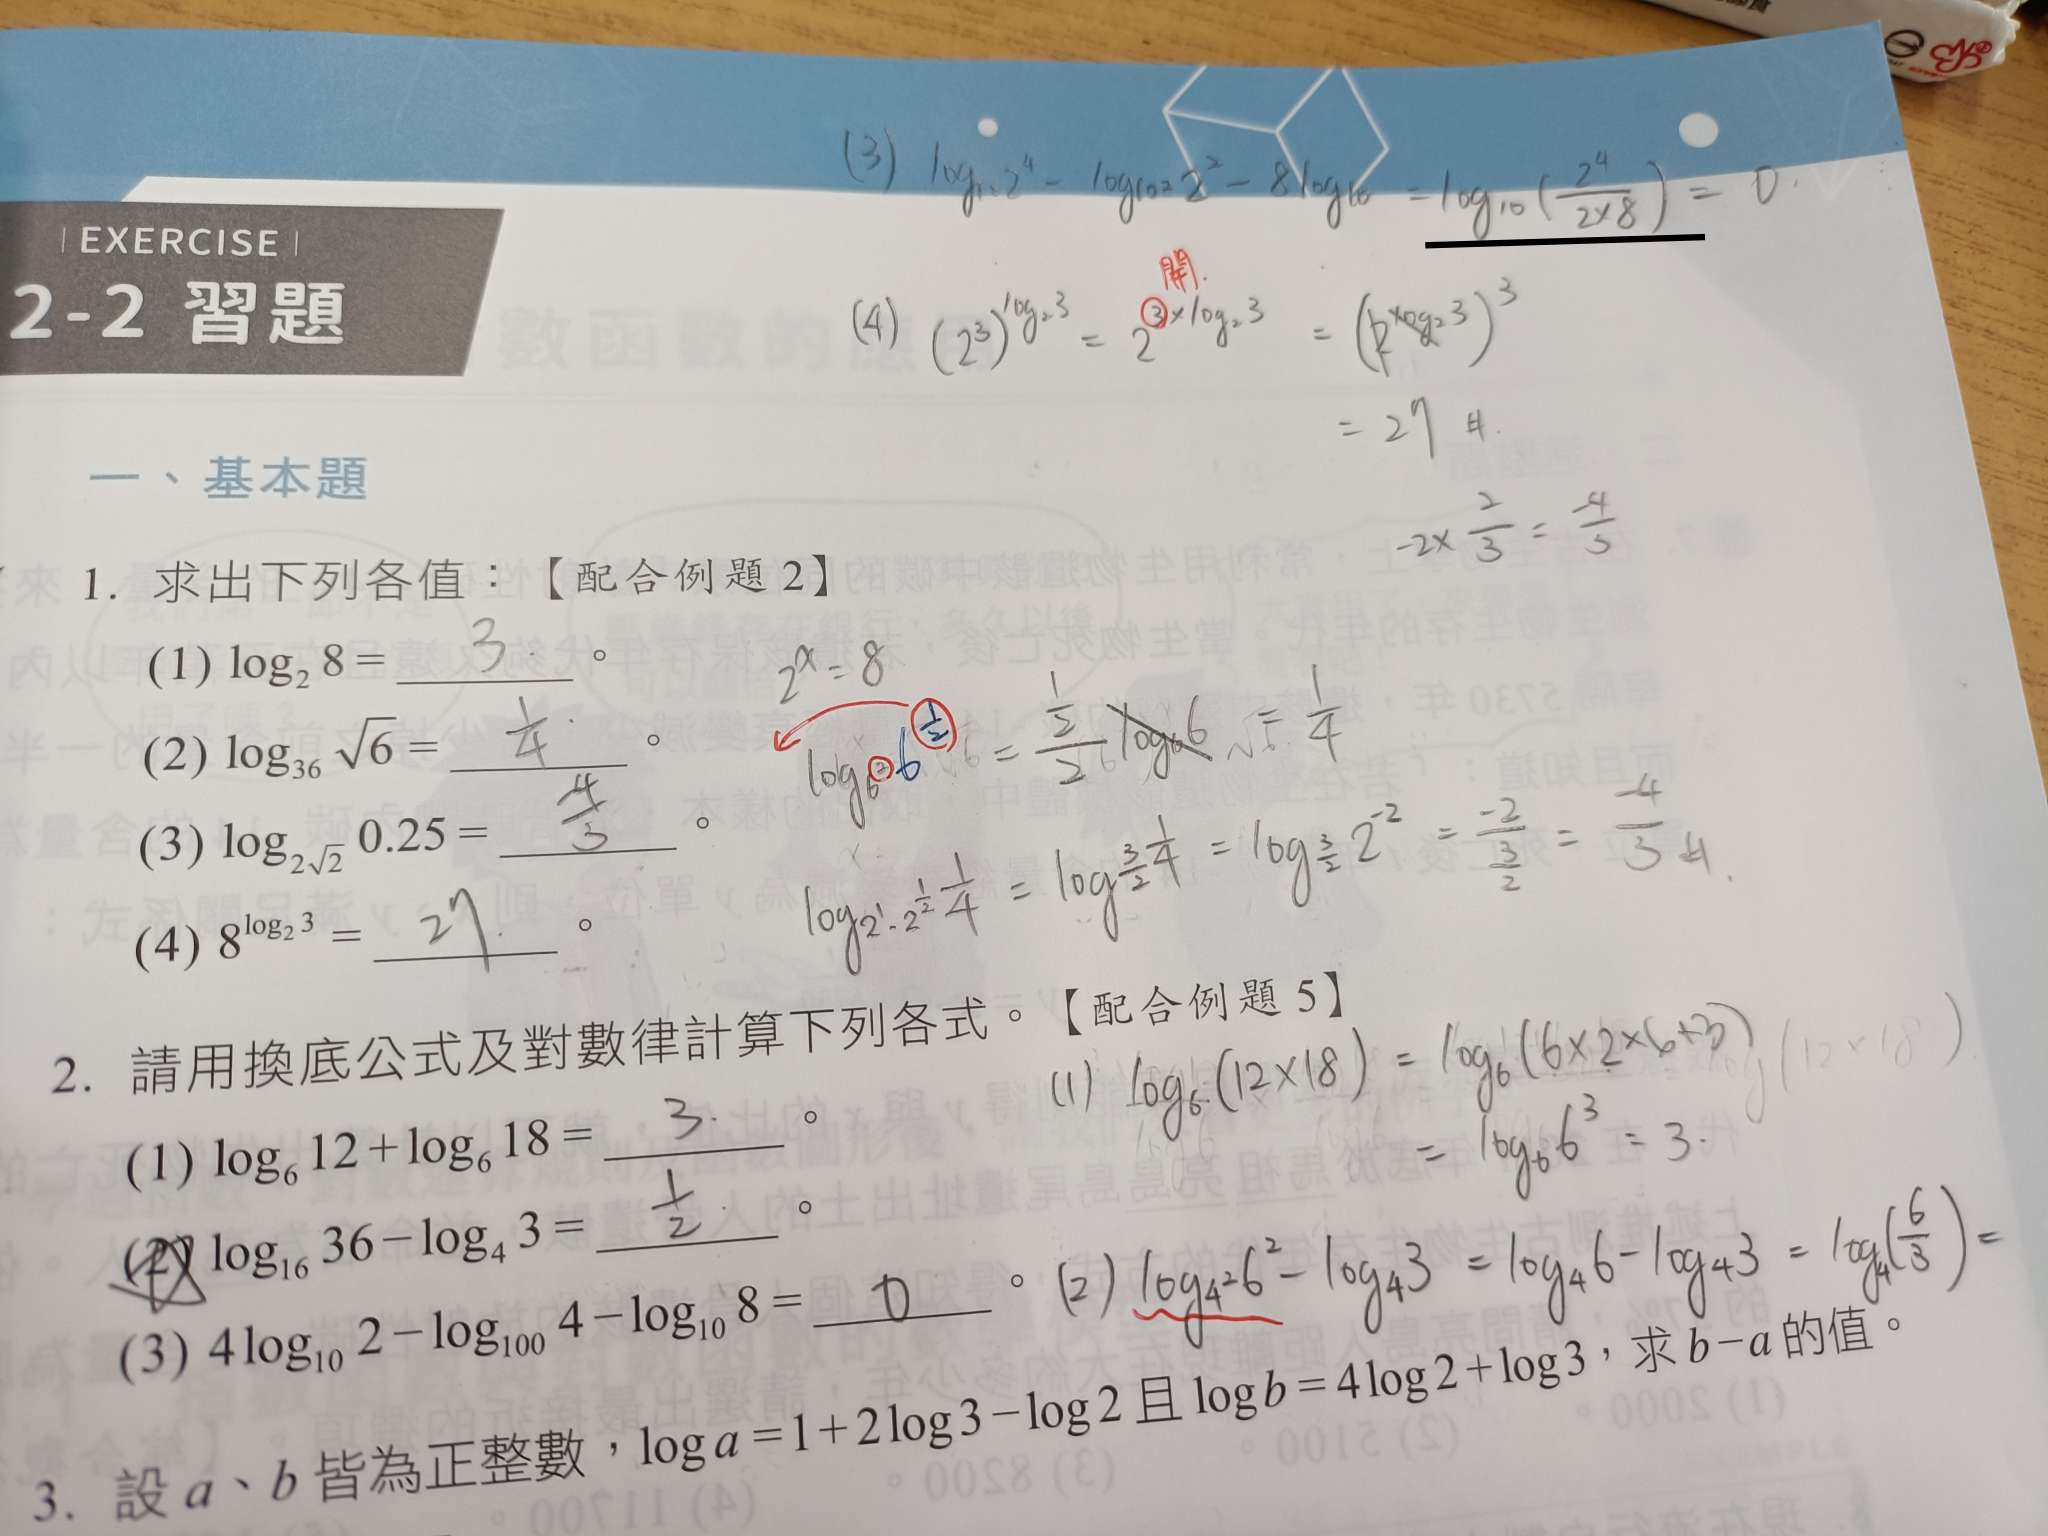 (3) log₁₀2⁴ - log₁₀²2² - 8log₁₀ = log₁₀(2⁴/2×8) = 0.
| EXERCISE |
2-2 習題
開.
(4) (2³)^log₂3 = 2^3×log₂3 = (2^log₂3)³
= 27 #.
一、基本題
-2×2/3 = -4/3
1. 求出下列各值：【配合例題 2】
(1) log₂ 8 = 3. 。
2ˣ = 8
(2) log₃₆ √6 = 1/4. 。
log₆²6^1/2 = (1/2)/2 log₆6 = 1/4
(3) log_2√2 0.25 = -4/3 。
log_2¹·2^1/2 1/4 = log_3/2 1/4 = log_3/2 2⁻² = -2/(3/2) = -4/3 #.
(4) 8^log₂3 = 27. 。
2. 請用換底公式及對數律計算下列各式。【配合例題 5】
(1) log₆(12×18) = log₆(6×2×6×3)
= log₆6³ = 3.
(1) log₆ 12 + log₆ 18 = 3. 。
(2) log₁₆ 36 - log₄ 3 = 1/2. 。
(2) log₄²6² - log₄3 = log₄6 - log₄3 = log₄(6/3) =
(3) 4 log₁₀ 2 - log₁₀₀ 4 - log₁₀ 8 = 0 。
3. 設 a、b 皆為正整數，log a = 1 + 2 log 3 - log 2 且 log b = 4 log 2 + log 3，求 b - a 的值。